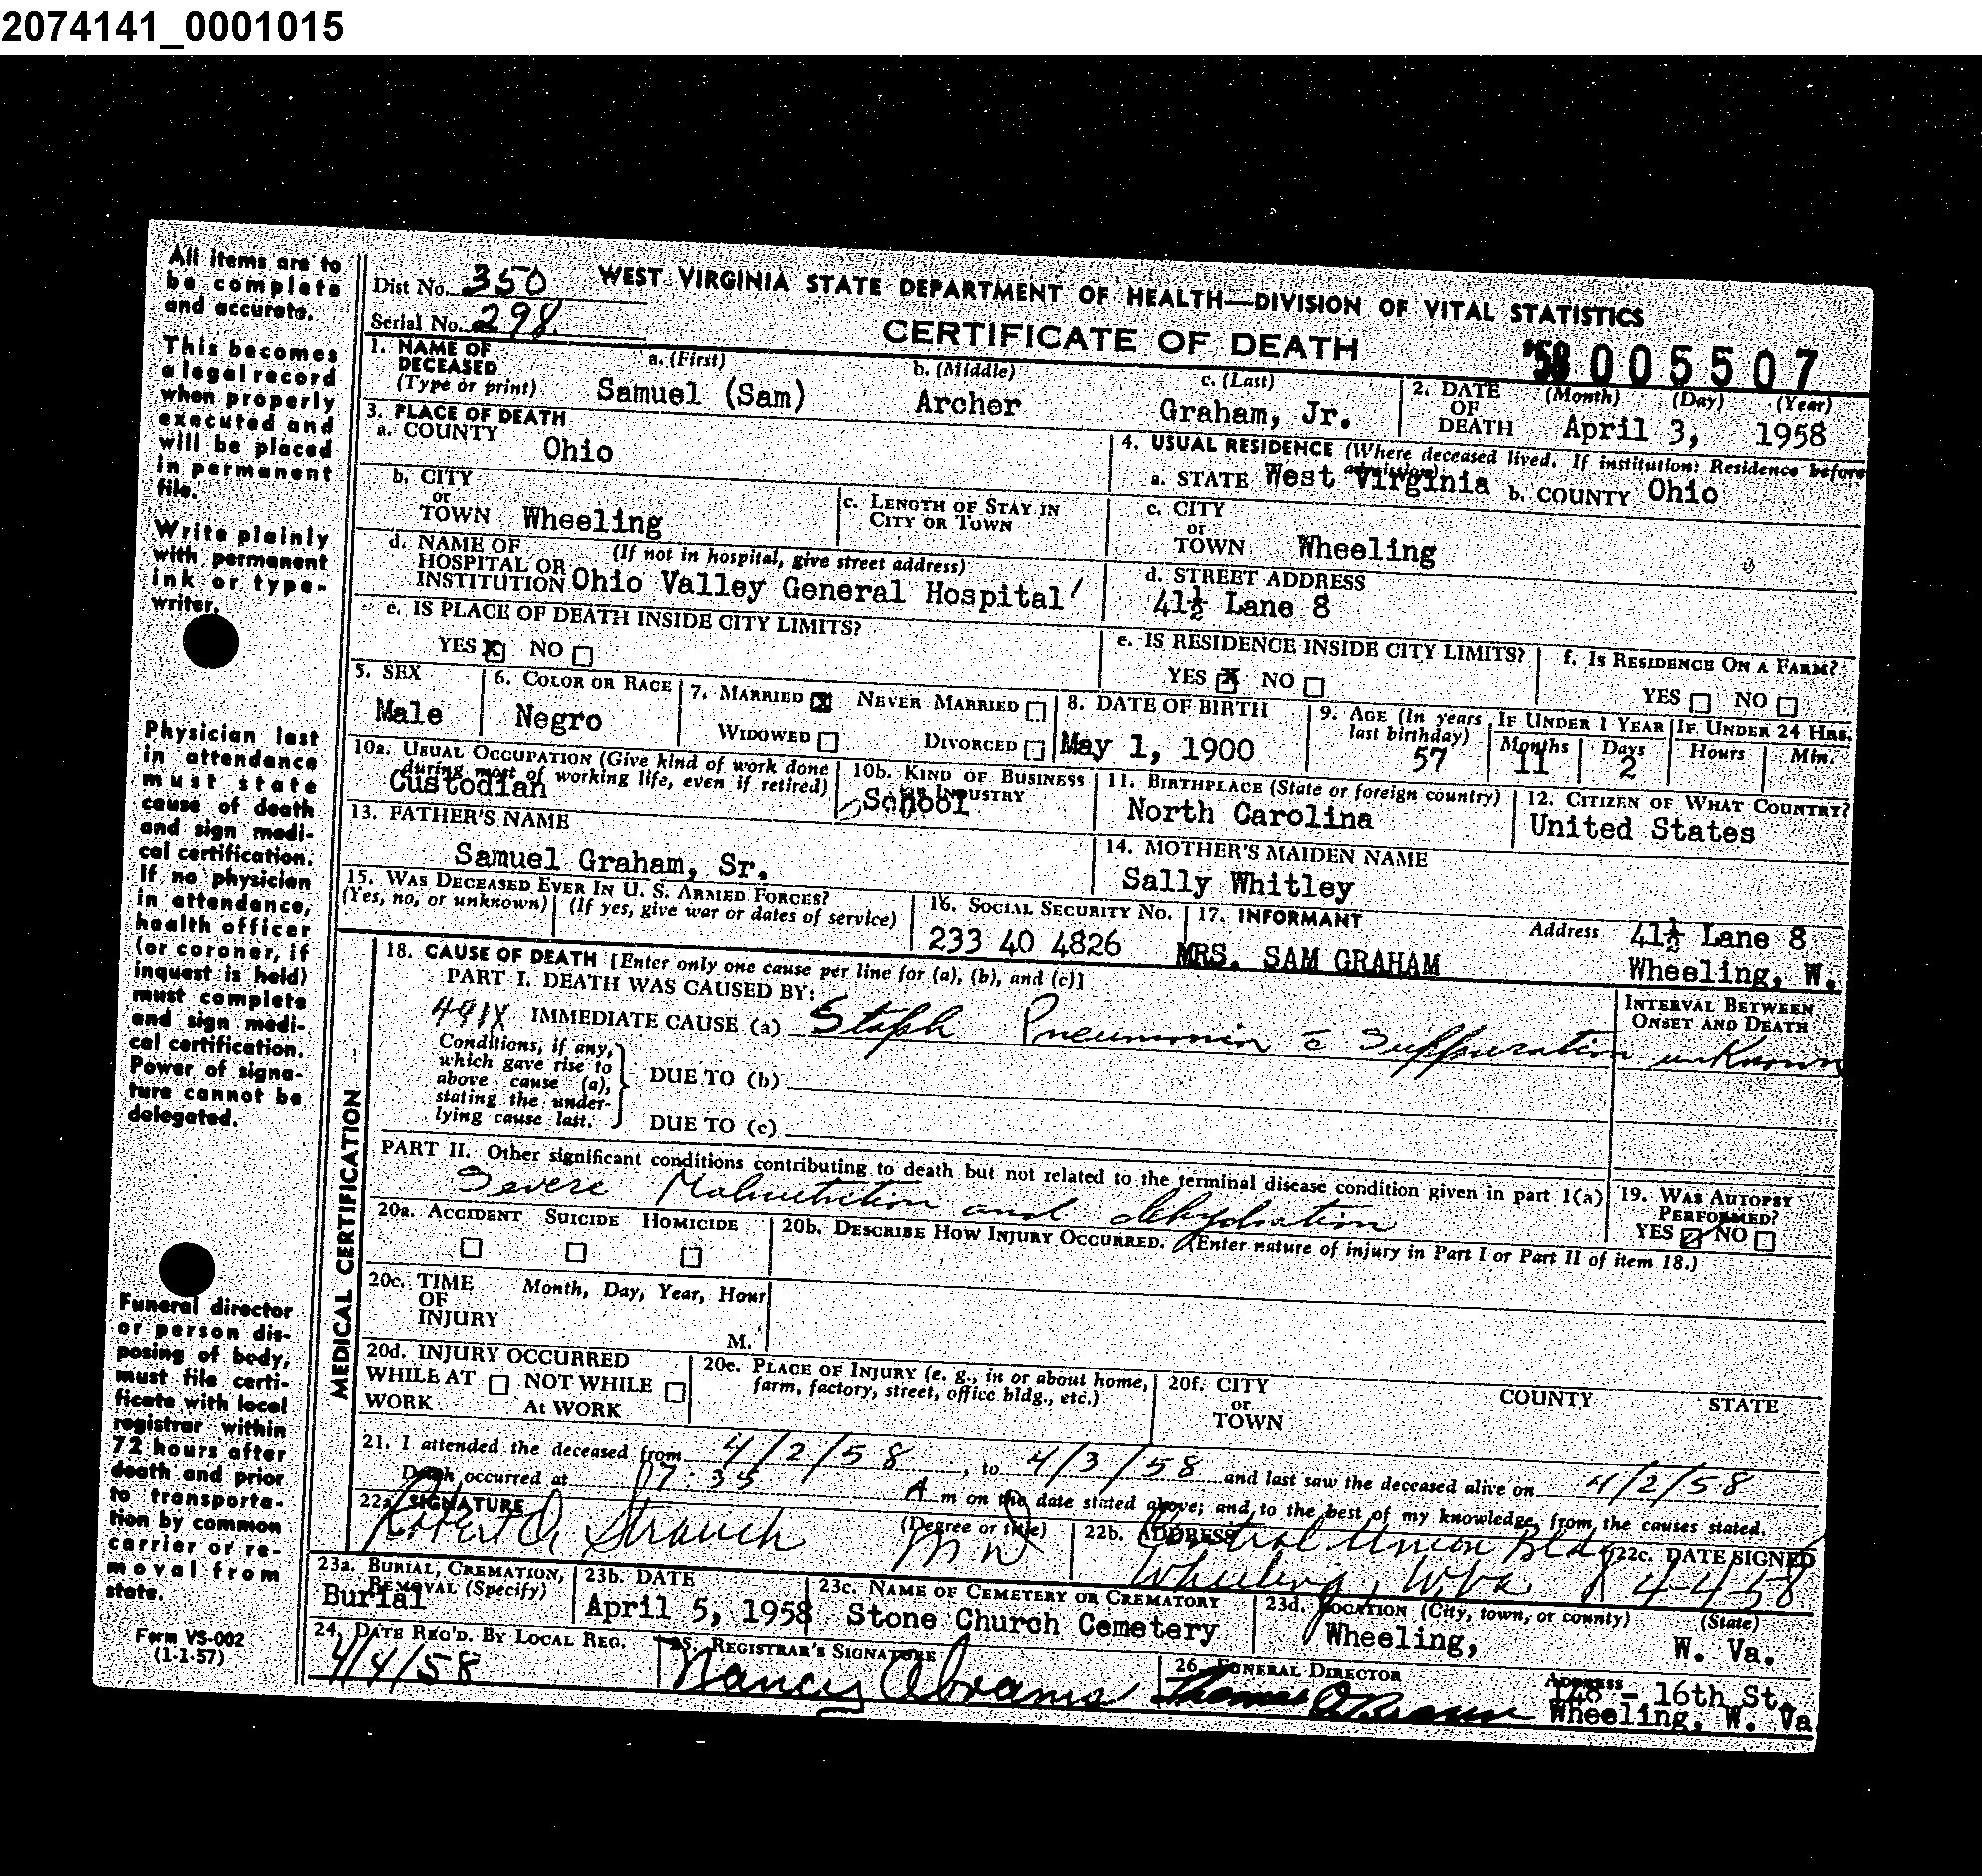 2074141_0001015
All items are to
be complete
and accurate.
This becomes
a legal record
when properly
executed and
will be placed
in permanent
file.
Write plainly
with permanent
ink or type-
writer.
Physician last
in attendance
must state
cause of death
and sign medi-
cal certification.
If no physician
in attendance,
health officer
(or coroner, if
inquest is held)
must complete
and sign medi-
cal certification.
Power of signa-
ture cannot be
delegated.
Funeral director
or person dis-
posing of body,
must file certi-
ficate with local
registrar within
72 hours after
death and prior
to transporta-
tion by common
carrier or re-
moval from
state.
Form VS-002
(1-1-57)
Dist No. 350
Serial No. 298
WEST VIRGINIA STATE DEPARTMENT OF HEALTH—DIVISION OF VITAL STATISTICS
CERTIFICATE OF DEATH
58 005507
1. NAME OF DECEASED (Type or print)
a. (First) Samuel (Sam)
b. (Middle) Archer
c. (Last) Graham, Jr.
2. DATE OF DEATH (Month) (Day) (Year)
April 3, 1958
3. PLACE OF DEATH
a. COUNTY Ohio
4. USUAL RESIDENCE (Where deceased lived. If institution: Residence before admission)
a. STATE West Virginia b. COUNTY Ohio
b. CITY or TOWN Wheeling
c. LENGTH OF STAY IN CITY OR TOWN
c. CITY or TOWN Wheeling
d. NAME OF HOSPITAL OR INSTITUTION (If not in hospital, give street address)
Ohio Valley General Hospital
d. STREET ADDRESS
41½ Lane 8
e. IS PLACE OF DEATH INSIDE CITY LIMITS?
YES X NO
e. IS RESIDENCE INSIDE CITY LIMITS?
YES X NO
f. IS RESIDENCE ON A FARM?
YES NO
5. SEX
Male
6. COLOR OR RACE
Negro
7. MARRIED X NEVER MARRIED
WIDOWED DIVORCED
8. DATE OF BIRTH
May 1, 1900
9. AGE (In years last birthday)
57
IF UNDER 1 YEAR
Months 11
Days 2
IF UNDER 24 HRS.
Hours Min.
10a. USUAL OCCUPATION (Give kind of work done during most of working life, even if retired)
Custodian
10b. KIND OF BUSINESS OR INDUSTRY
School
11. BIRTHPLACE (State or foreign country)
North Carolina
12. CITIZEN OF WHAT COUNTRY?
United States
13. FATHER'S NAME
Samuel Graham, Sr.
14. MOTHER'S MAIDEN NAME
Sally Whitley
15. WAS DECEASED EVER IN U. S. ARMED FORCES?
(Yes, no, or unknown) (If yes, give war or dates of service)
16. SOCIAL SECURITY No.
233 40 4826
17. INFORMANT
MRS. SAM GRAHAM
Address 41½ Lane 8
Wheeling, W.
MEDICAL CERTIFICATION
18. CAUSE OF DEATH [Enter only one cause per line for (a), (b), and (c)]
PART I. DEATH WAS CAUSED BY:
491X IMMEDIATE CAUSE (a) Staph Pneumonia c̄ Suppuration
INTERVAL BETWEEN ONSET AND DEATH
unknown
Conditions, if any, which gave rise to above cause (a), stating the under-lying cause last.
DUE TO (b)
DUE TO (c)
PART II. Other significant conditions contributing to death but not related to the terminal disease condition given in part I(a)
Severe Malnutrition and dehydration
19. WAS AUTOPSY PERFORMED?
YES NO
20a. ACCIDENT SUICIDE HOMICIDE
20b. DESCRIBE HOW INJURY OCCURRED. (Enter nature of injury in Part I or Part II of item 18.)
20c. TIME OF INJURY
Month, Day, Year, Hour
M.
20d. INJURY OCCURRED
WHILE AT WORK NOT WHILE At WORK
20e. PLACE OF INJURY (e. g., in or about home, farm, factory, street, office bldg., etc.)
20f. CITY or TOWN COUNTY STATE
21. I attended the deceased from 4/2/58, to 4/3/58 and last saw the deceased alive on 4/2/58
Death occurred at 7:35 A m on the date stated above; and to the best of my knowledge, from the causes stated.
22a. SIGNATURE (Degree or title)
Robert O. Strauch MD
22b. ADDRESS
Central Union Bldg
Wheeling, W.Va
22c. DATE SIGNED
4-4-58
23a. BURIAL, CREMATION, REMOVAL (Specify)
Burial
23b. DATE
April 5, 1958
23c. NAME OF CEMETERY OR CREMATORY
Stone Church Cemetery
23d. LOCATION (City, town, or county) (State)
Wheeling, W. Va.
24. DATE REC'D. BY LOCAL REG.
4/4/58
25. REGISTRAR'S SIGNATURE
Nancy Abrams
26. FUNERAL DIRECTOR
Thomas
ADDRESS
148 - 16th St.
Wheeling, W. Va